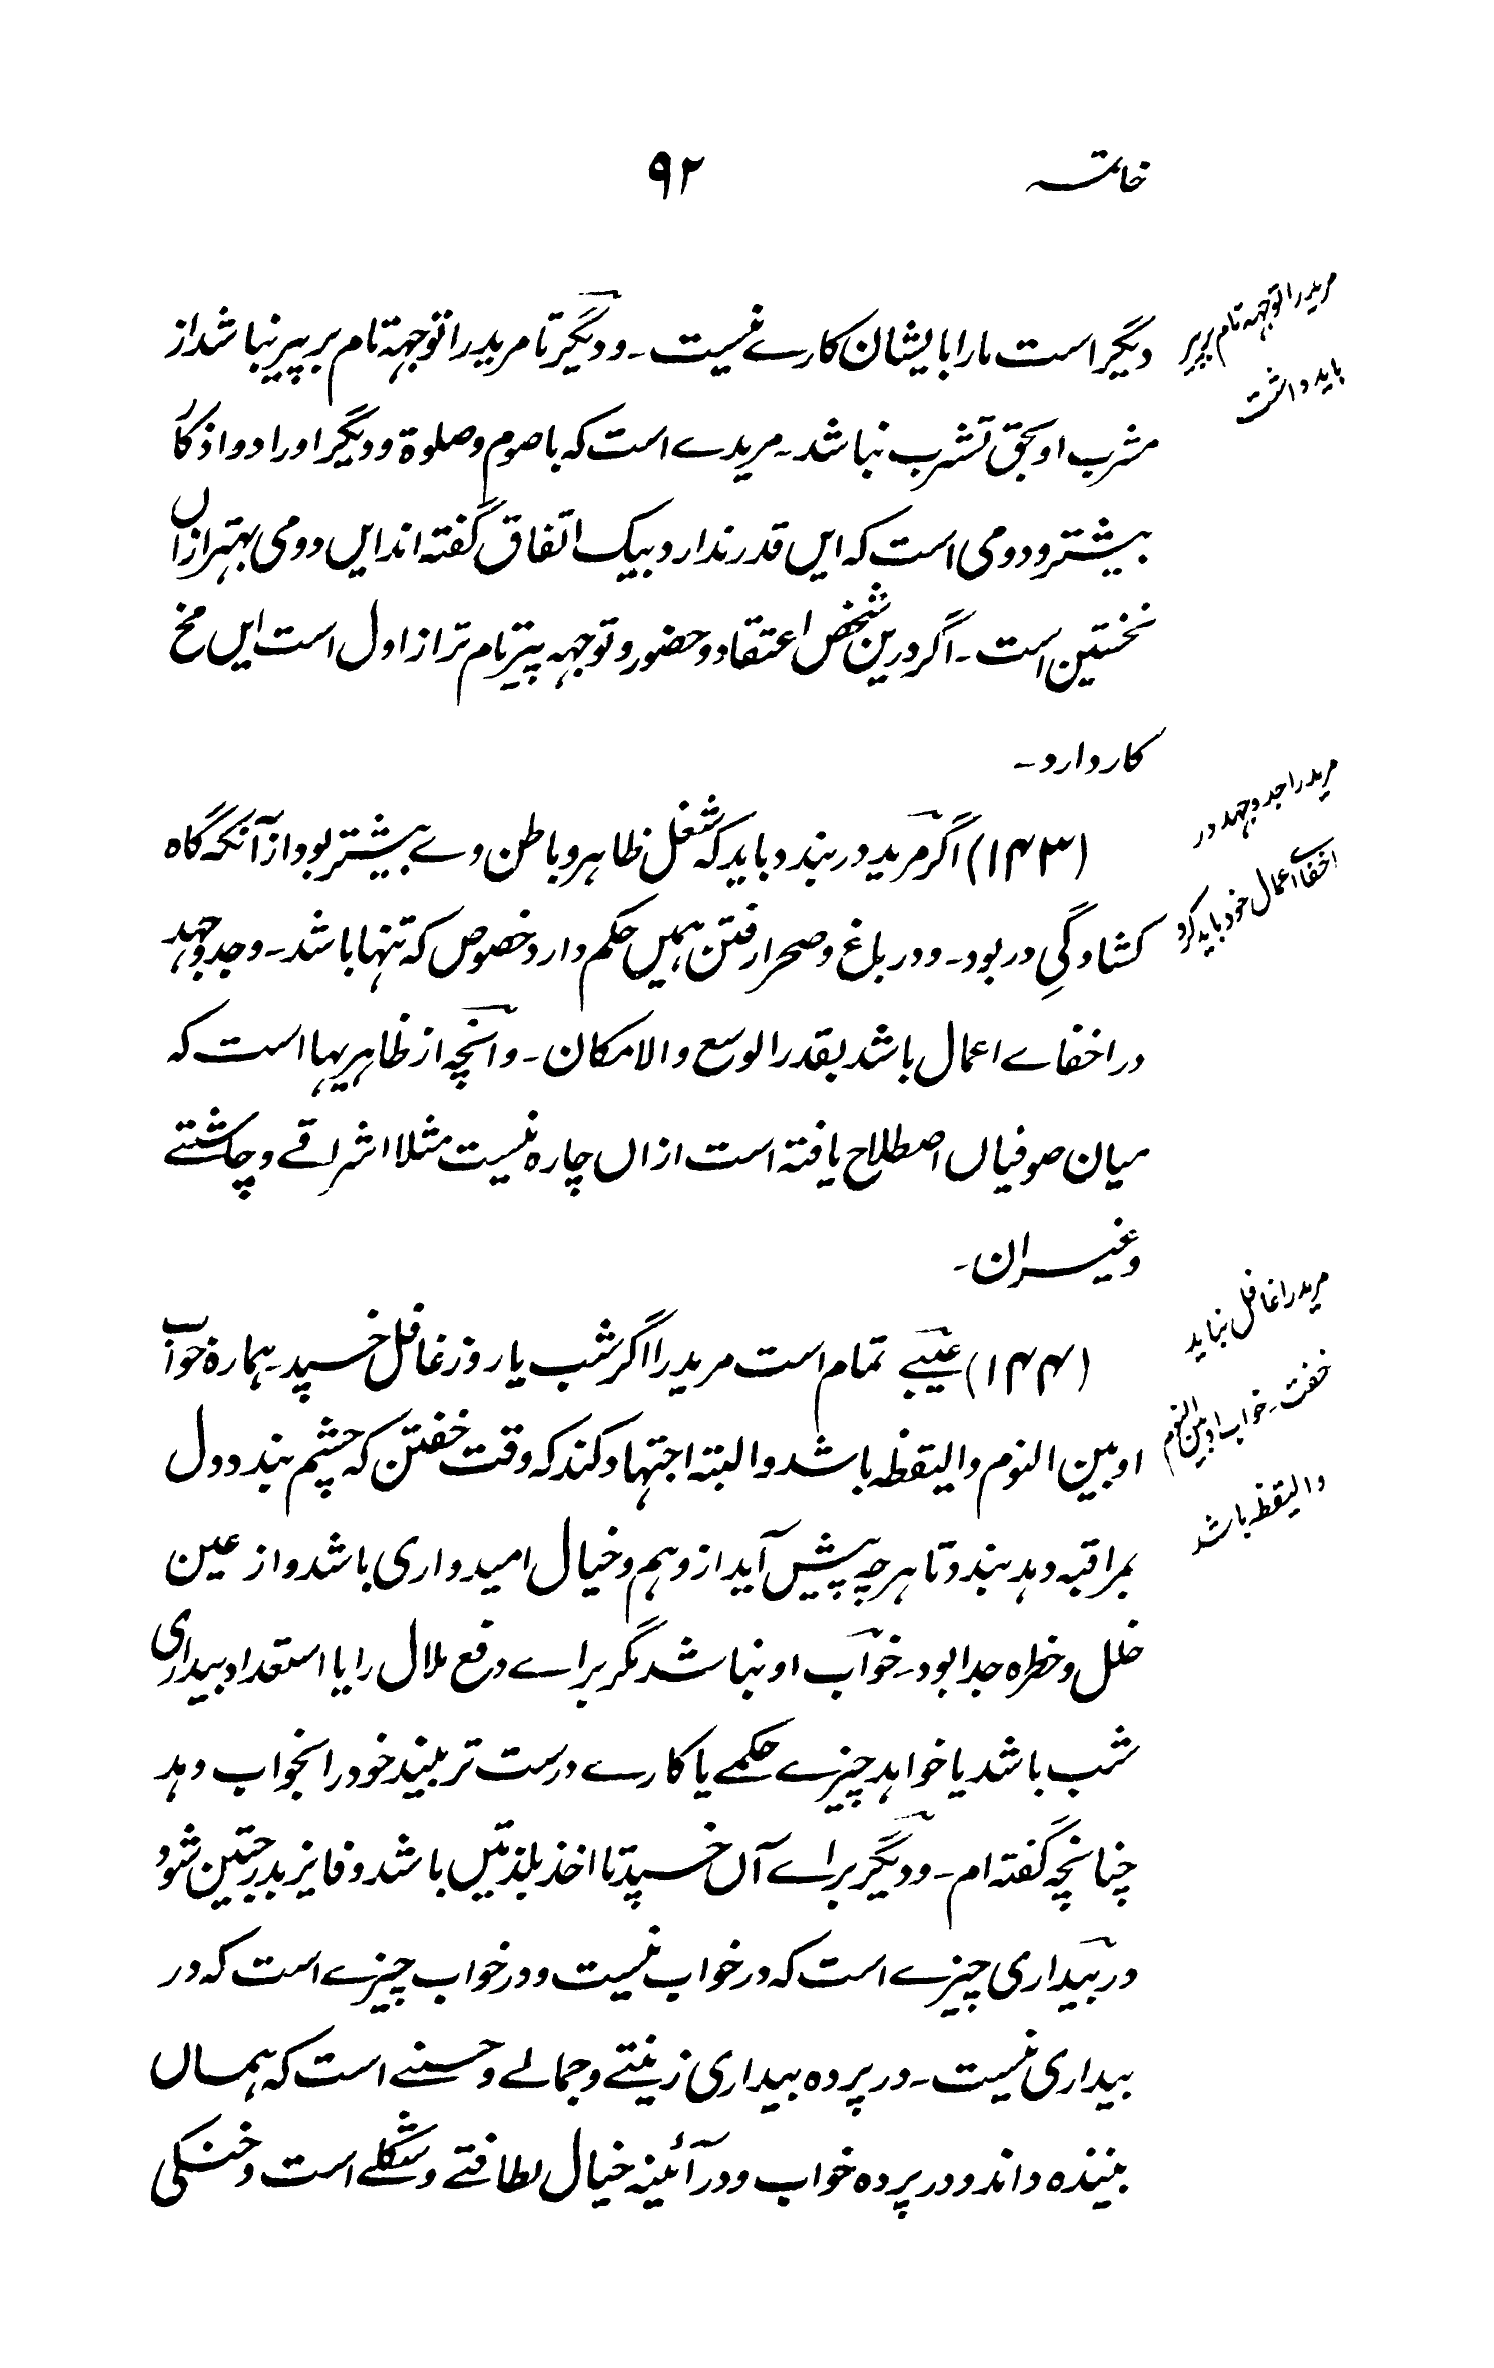 خاتمہ
۹۲
مرید را توجہہ تام بر پیر
باید داشت
دیگر است ما را بایشان کارے نیست ۔ و دیگر تا مرید را توجہہ تام بر پیر نباشد از
مشرب او بحق تشرب نباشد ۔ مریدے است کہ با صوم و صلوۃ و دیگر اوراد و اذکار
بیشتر و دومی است کہ ایں قدر ندارد بیک اتفاق گفتہ اند ایں دومی بہتر ازاں
نختین است ۔ اگر درین شخص اعتقاد و حضور و توجہہ پیر تام تر از اول است ایں مخ
کار دارد ۔
مرید را جد و جہد در
اخفاے اعمال خود باید کرد
(۱۴۳) اگر مرید در بندد باید کہ شغل ظاہر و باطن وے بیشتر بود از آنکہ گاہ
کشادگیِ در بود ۔ و در باغ و صحرا رفتن ہمیں حکم دارد خصوص کہ تنہا باشد ۔ و جد و جہد
در اخفاے اعمال باشد بقدر الوسع والامکان ۔ و آنچہ از ظاہریہا است کہ
میان صوفیاں اصطلاح یافتہ است ازاں چارہ نیست مثلا اشراقے و چاشتے
وغیر ان ۔
مرید را غافل نباید
خفت ۔ خواب او بین النوم
والیقظہ باشد
(۱۴۴) عیبے تمام است مرید را اگر شب یا روز غافل خسپد ۔ ہمارہ خواب
او بین النوم والیقظہ باشد والبتہ اجتہاد کند کہ وقت خفتن کہ چشم بندد دل
بمراقبہ دہد بندد تا ہرچہ پیش آید از وہم و خیال امیدواری باشد و از عین
خلل و خطرہ جدا بود ۔ خواب او نباشد مگر براے دفع ملال را یا استعداد بیداری
شب باشد یا خواہد چیزے حکمے یا کارے درست تر بیند خود را بخواب دہد
چنانچہ گفتہ ام ۔ و دیگر براے آں خسپد تا اخذ بلذتیں باشد و فایز بدرجتین شود
در بیداری چیزے است کہ در خواب نیست و در خواب چیزے است کہ در
بیداری نیست ۔ در پردہ بیداری زینتے و جمالے و حسنے است کہ ہماں
بینندہ داند و در پردہ خواب و در آئینہ خیال لطافتے و شکلے است و خنکی